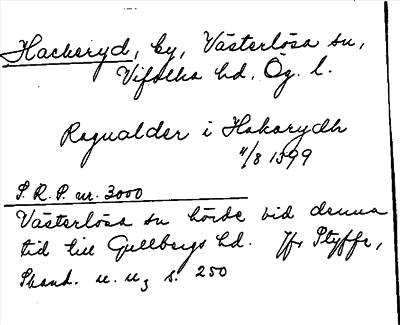 Hackeryd, by, Västerlösa sn,
Vifolka hd, Ög. l.
Ragualder i Hakarydh
11/8 1399
S.R.P. nr. 3000
Västerlösa sn hörde vid denna
tid till Gullbergs hd. Jfr Styffe,
Skand. u. u3 s. 250